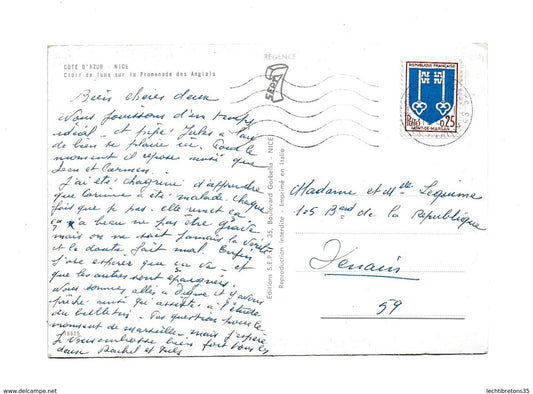 COTE D'AZUR - NICE
Clair de lune sur la Promenade des Anglais
Bien chères deux
Nous jouissons d'un temps
idéal - et pépé Jules a l'air
de bien se plaire ici. Pour le
moment il repose ainsi que
Jean et Carmen.
J'ai été chagriné d'apprendre
que Corinne a été malade. Chaque
fois que je pas. elle remet ça
ça a beau ne pas être grave
mais on ne sait jamais la vérité
et le doute fait mal. Enfin
J'ose espérer que ça va - et
que les autres sont épargnés.
Nous sommes allés à
aussi qui assiste à l'étude
du bulletin - Pas question pour le
moment de marseille - mais j'espère
Je vous embrasse bien fort tous les
deux Rachel et Jules
Editions S.E.P.T. 35, Boulevard Gorbella - NICE
Reproduction interdite - Imprimé en Italie
SEPT
REPUBLIQUE FRANÇAISE
Postes 0,25
MONT-DE-MARSAN
Madame et Mlle Leguime
105 Bard de la République
Denain
59
www.delcampe.net
lechtibretons35